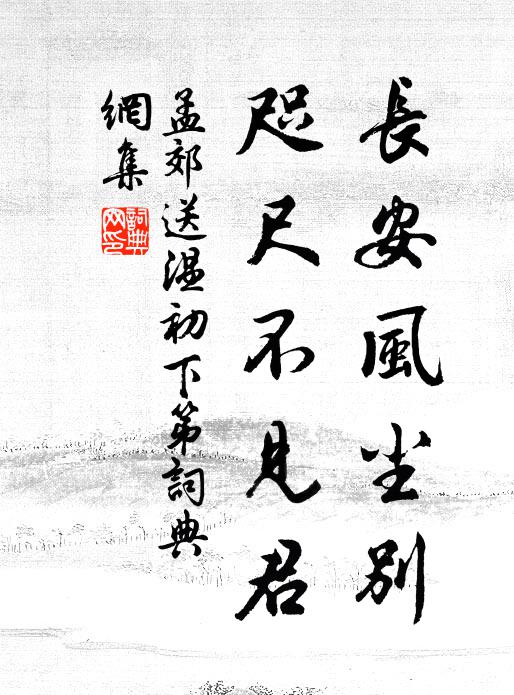 長安風尘別
咫尺不見君
孟郊送溫初下第詞典
網集
詞典
网印